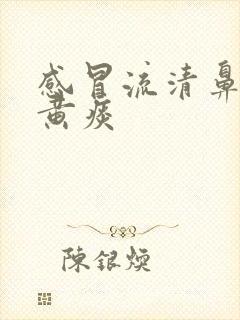 感冒流清鼻
黄痰
陳銀煐